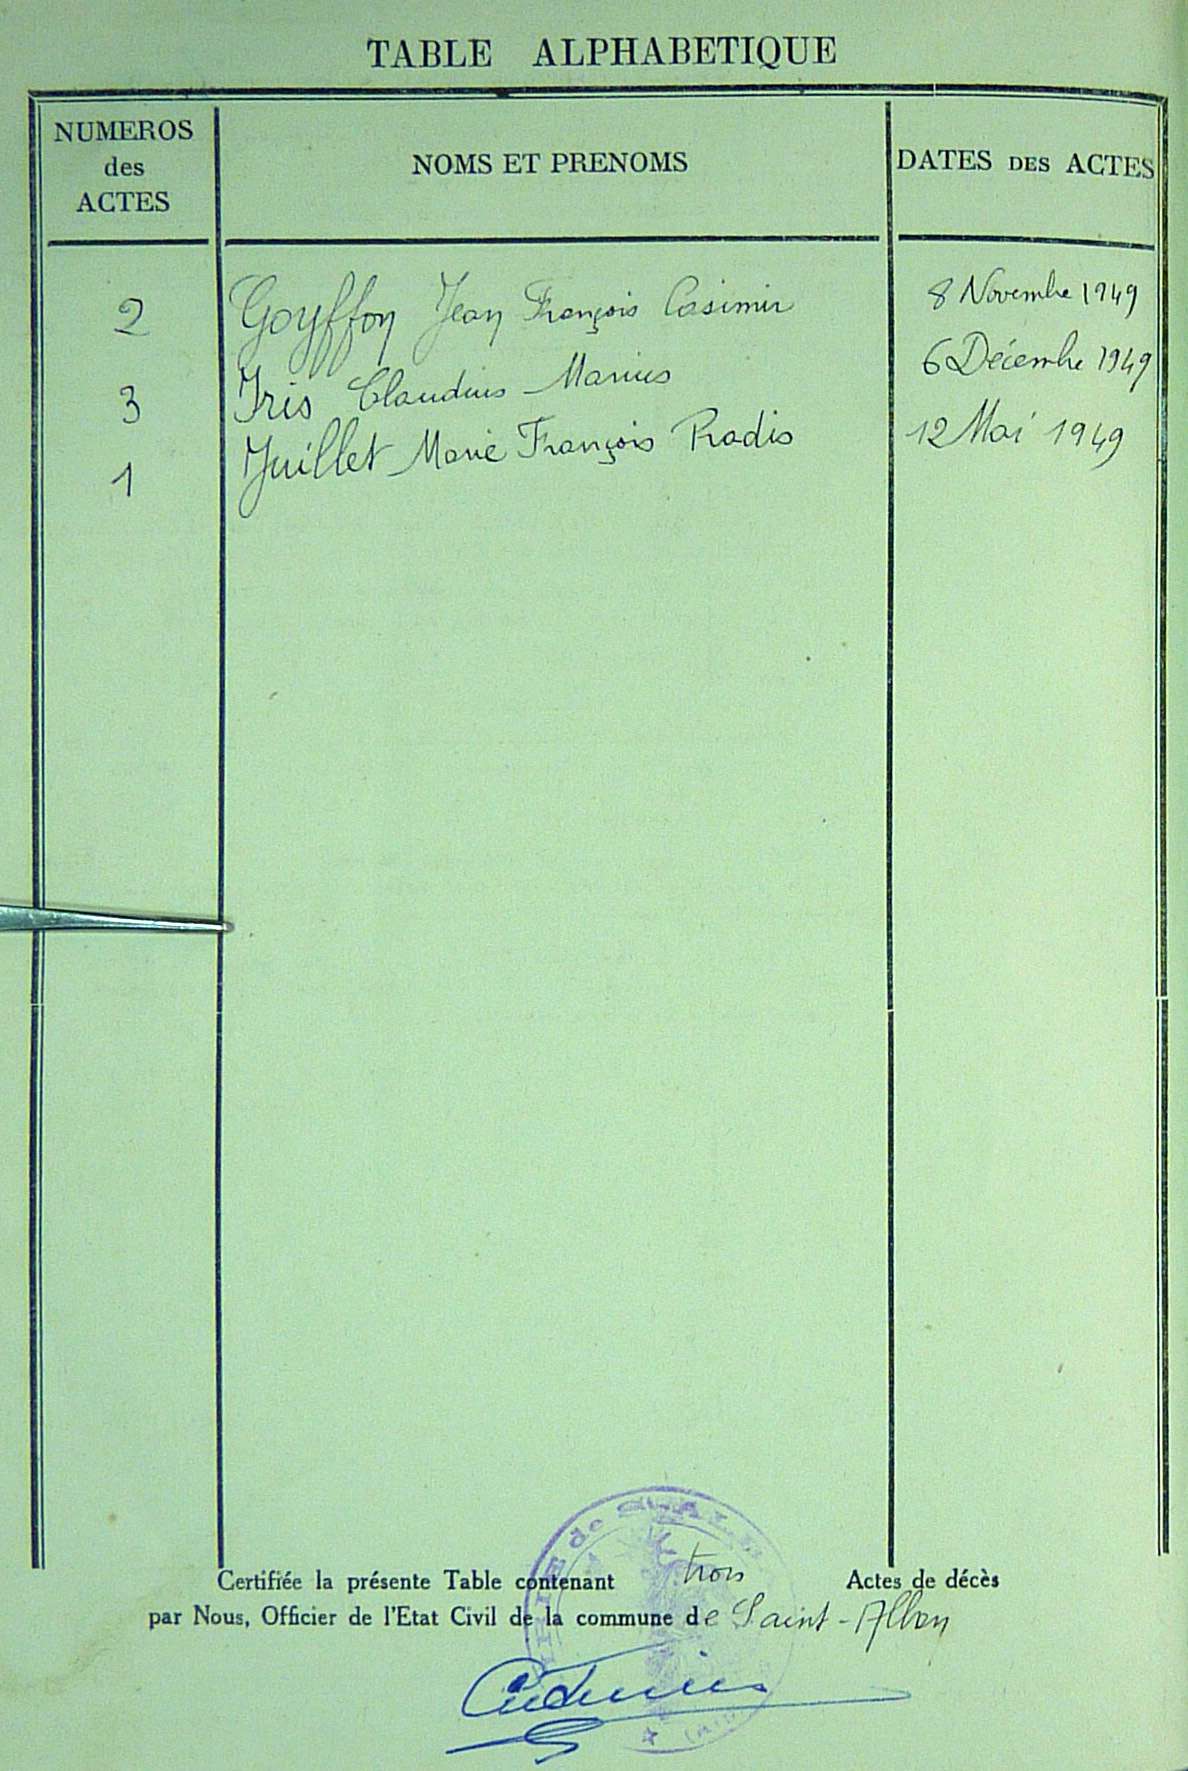 TABLE ALPHABETIQUE
NUMEROS des ACTES
NOMS ET PRENOMS
DATES DES ACTES
2 Goyffon Jean François Casimir 8 Novembre 1949
3 Iris Claudius Marius 6 Décembre 1949
1 Juillet Marie François Radis 12 Mai 1949
Certifiée la présente Table contenant trois Actes de décès
par Nous, Officier de l'Etat Civil de la commune de Saint-Alban